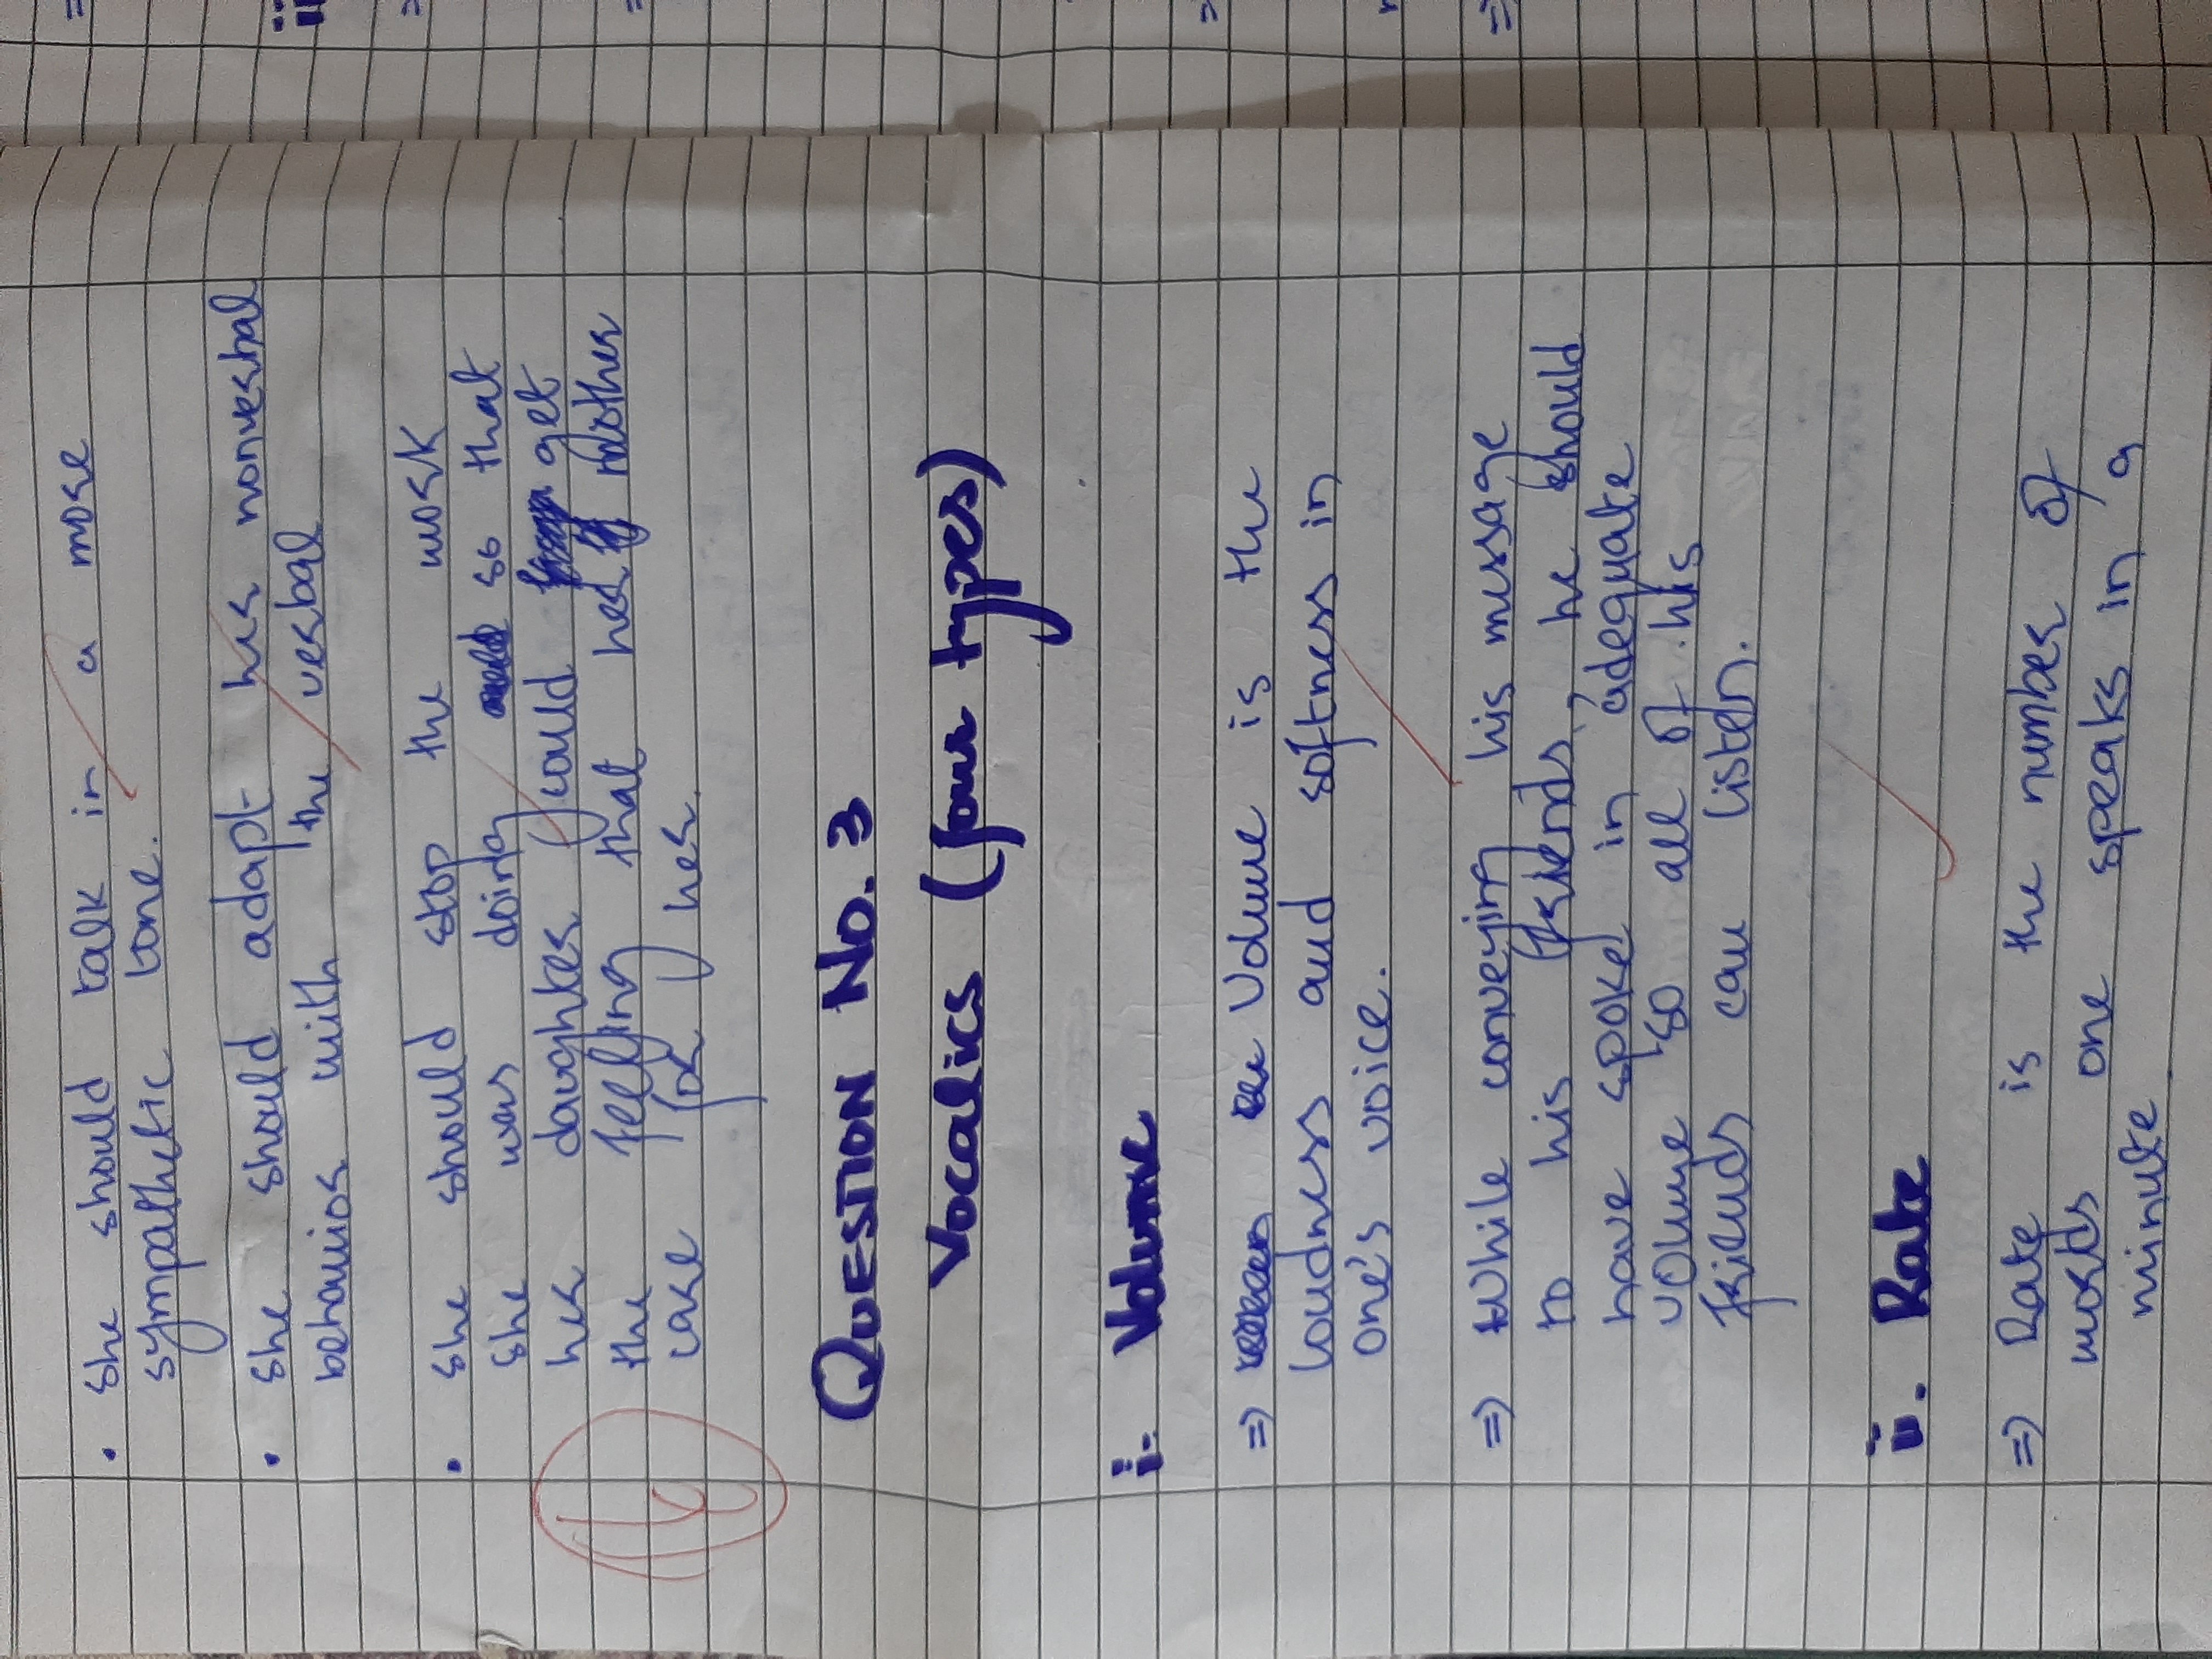 • She should talk in a more
sympathetic tone.
• She should adapt her nonverbal
behavior with the verbal
• She should stop the work
she was doing so that
her daughter could get
the feeling that her mother
care for her.
QUESTION No. 3
Vocalics (four types)
i- Volume
⇒ Volume is the
loudness and softness in
one's voice.
⇒ While conveying his message
to his friends, he should
have spoke in adequate
volume so all of his
friends can listen.
ii. Rate
⇒ Rate is the number of
words one speaks in a
minute